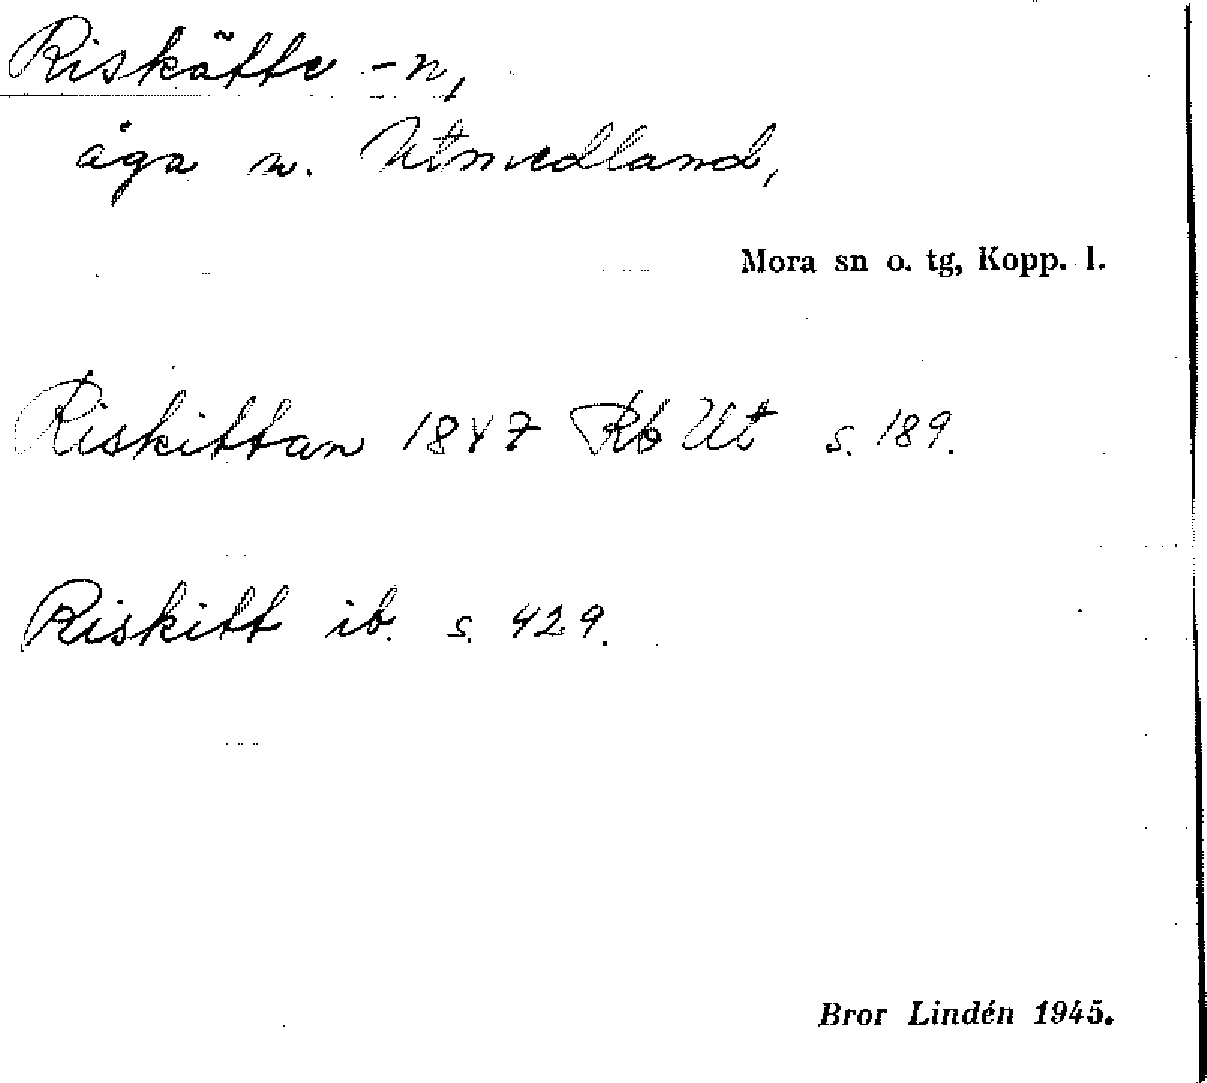 Riskätte -n,
äga n. Utmedland,
Mora sn o. tg, Kopp. l.
Riskittan 1847 Rb Ut s. 189.
Riskitt ib. s. 429.
Bror Lindén 1945.